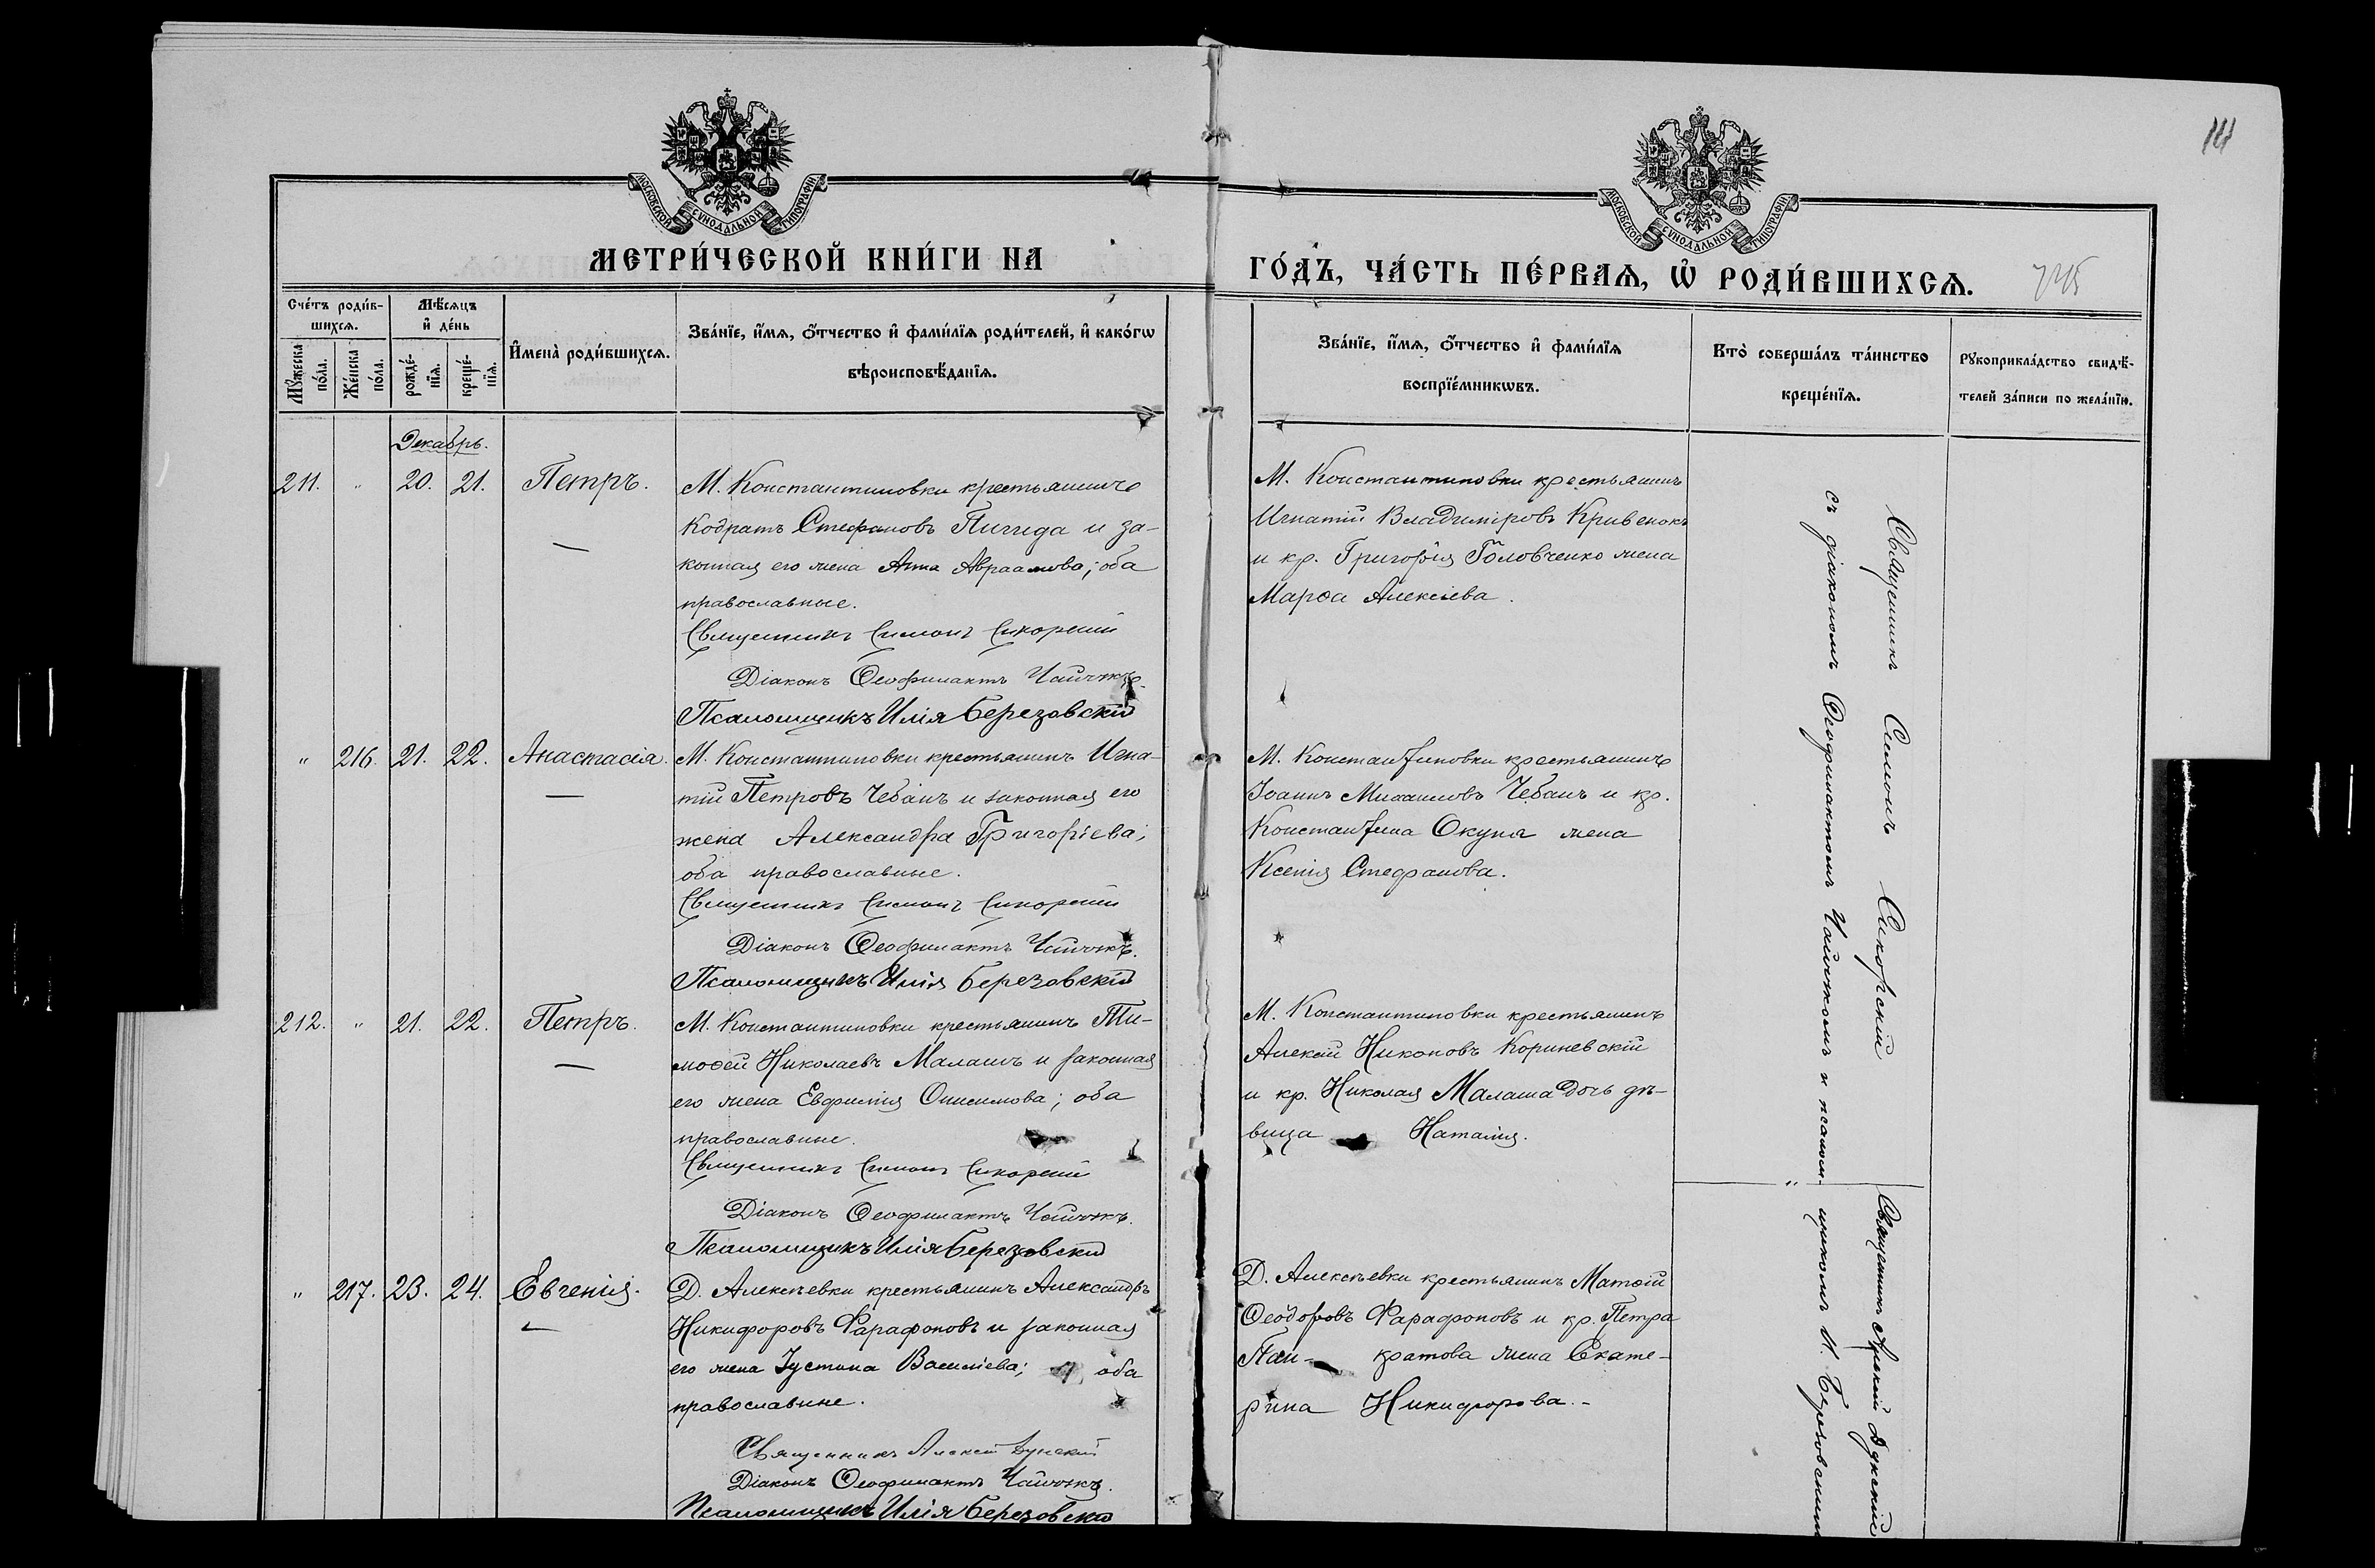 141
МОСКОВСКОЙ СУНОДАЛЬНОЙ ТИПОГРАФІИ
МОСКОВСКОЙ СУНОДАЛЬНОЙ ТИПОГРАФІИ
МЕТРИ́ЧЕСКОЙ КНИ́ГИ НА
ГО́ДЪ, ЧА́СТЬ ПЕ́РВАѦ, Ѡ҆ РОДИ́ВШИХСѦ.
Сче́тъ роди́в-
шихсѧ.
Мꙋ́жеска по́ла.
Же́нска по́ла.
Мѣ́сѧцъ
и҆ де́нь
рожде́-
нїѧ.
креще́-
нїѧ.
И҆мена̀ роди́вшихсѧ.
Зва́нїе, и҆́мѧ, ѻ҆́тчество и҆ фами́лїѧ роди́телей, и҆ како́гѡ
вѣроисповѣ́данїѧ.
Зва́нїе, и҆́мѧ, ѻ҆́тчество и҆ фами́лїѧ
воспрїе́мникѡвъ.
Кто̀ соверша́лъ та́инство
креще́нїѧ.
Рꙋкоприкла́дство свидѣ́-
телей за́писи по жела́нїю.
Декабрь.
211. " 20. 21. Петръ.
М. Константиновки крестьянинъ
Кодратъ Стефановъ Пичида и за-
конная его жена Анна Авраамова; оба
православные.
Священникъ Симонъ Сикорскій
Діаконъ Ѳеофилактъ
Псаломщикъ Илія Березовскій
М. Константиновки крестьянинъ
Игнатій Владиміровъ Кривенокъ
и кр. Григорія Головченко жена
Марѳа Алексіева.
" 216. 21. 22. Анастасія.
М. Константиновки крестьянинъ Игна-
тій Петровъ Чебанъ и законная его
жена Александра Григоріева;
оба православные.
Священникъ Симонъ Сикорскій
Діаконъ Ѳеофилактъ
Псаломщикъ Илія Березовскій
М. Константиновки крестьянинъ
Іоаннъ Михаиловъ Чебанъ и кр.
Константина Окуня жена
Ксенія Стефанова.
212. " 21. 22. Петръ.
М. Константиновки крестьянинъ Ти-
моѳей Николаевъ Малашъ и законная
его жена Евфимія Онисимова; оба
православные.
Священникъ Симонъ Сикорскій
Діаконъ Ѳеофилактъ
Псаломщикъ Илія Березовскій
М. Константиновки крестьянинъ
Алексій Никоновъ Кориневскій
и кр. Николая Малаша дочь дѣ-
вица Наталія.
" 217. 23. 24. Евгенія.
Д. Алексѣевки крестьянинъ Александръ
Никифоровъ Фарафоновъ и законная
его жена Іустина Василіева; оба
православные.
Священникъ Алексій Дунскій
Діаконъ Ѳеофилактъ
Псаломщикъ Илія Березовскій
Д. Алексѣевки крестьянинъ Матѳій
Ѳеодоровъ Фарафоновъ и кр. Петра
Пан- кратова жена Екате-
рина Никифорова.
Священникъ Симонъ Сикорскій
съ діакономъ Ѳеофилактомъ и псалом-
Священникъ Алексій Дунскій
щикомъ И. Березовскимъ